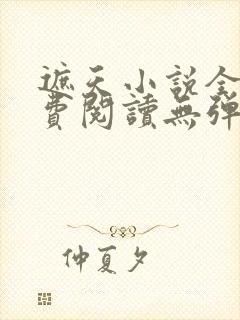 遮天小說全
費閱讀無彈
仲夏夕